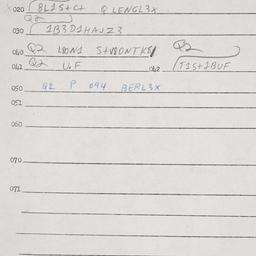 020 8L1S+C+ Q LENGL3X
Q2
030 1B3D1HAJZ3
040 Q2 WON1 S+WONTKE/ Q2
041 Q2 UF 042 T1S+1BUF
050 Q2 P 094 BERL3X
051
052
060
070
071